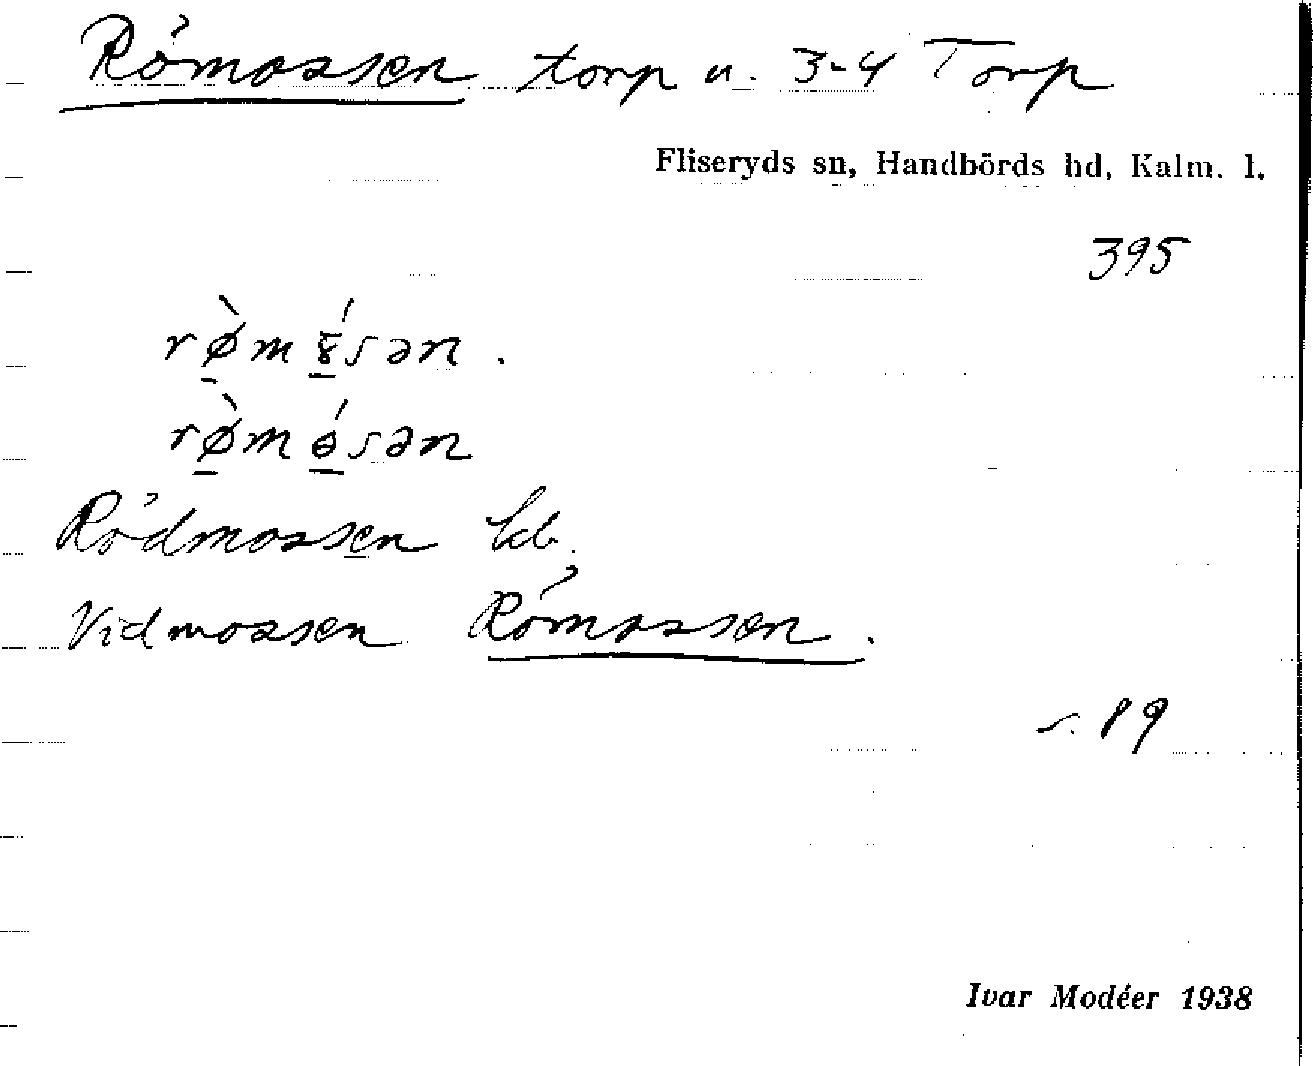 Römossen torp u. 3-4 Torp
Fliseryds sn, Handbörds hd, Kalm. l.
395
rø̀mɤ́sən.
rø̀mɵ́sən
Rödmossen kb.
Vidmossen Römossen.
s. 89
Ivar Modéer 1938